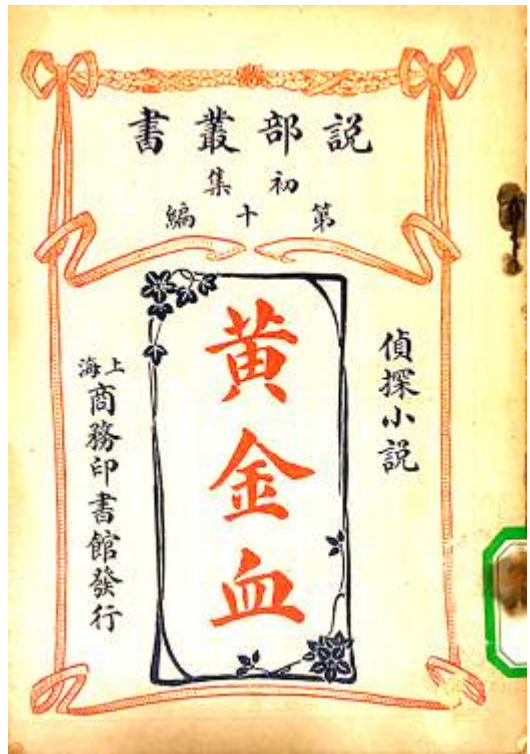 説部叢書
初集
第十編
偵探小説
黄金血
上海商務印書館發行